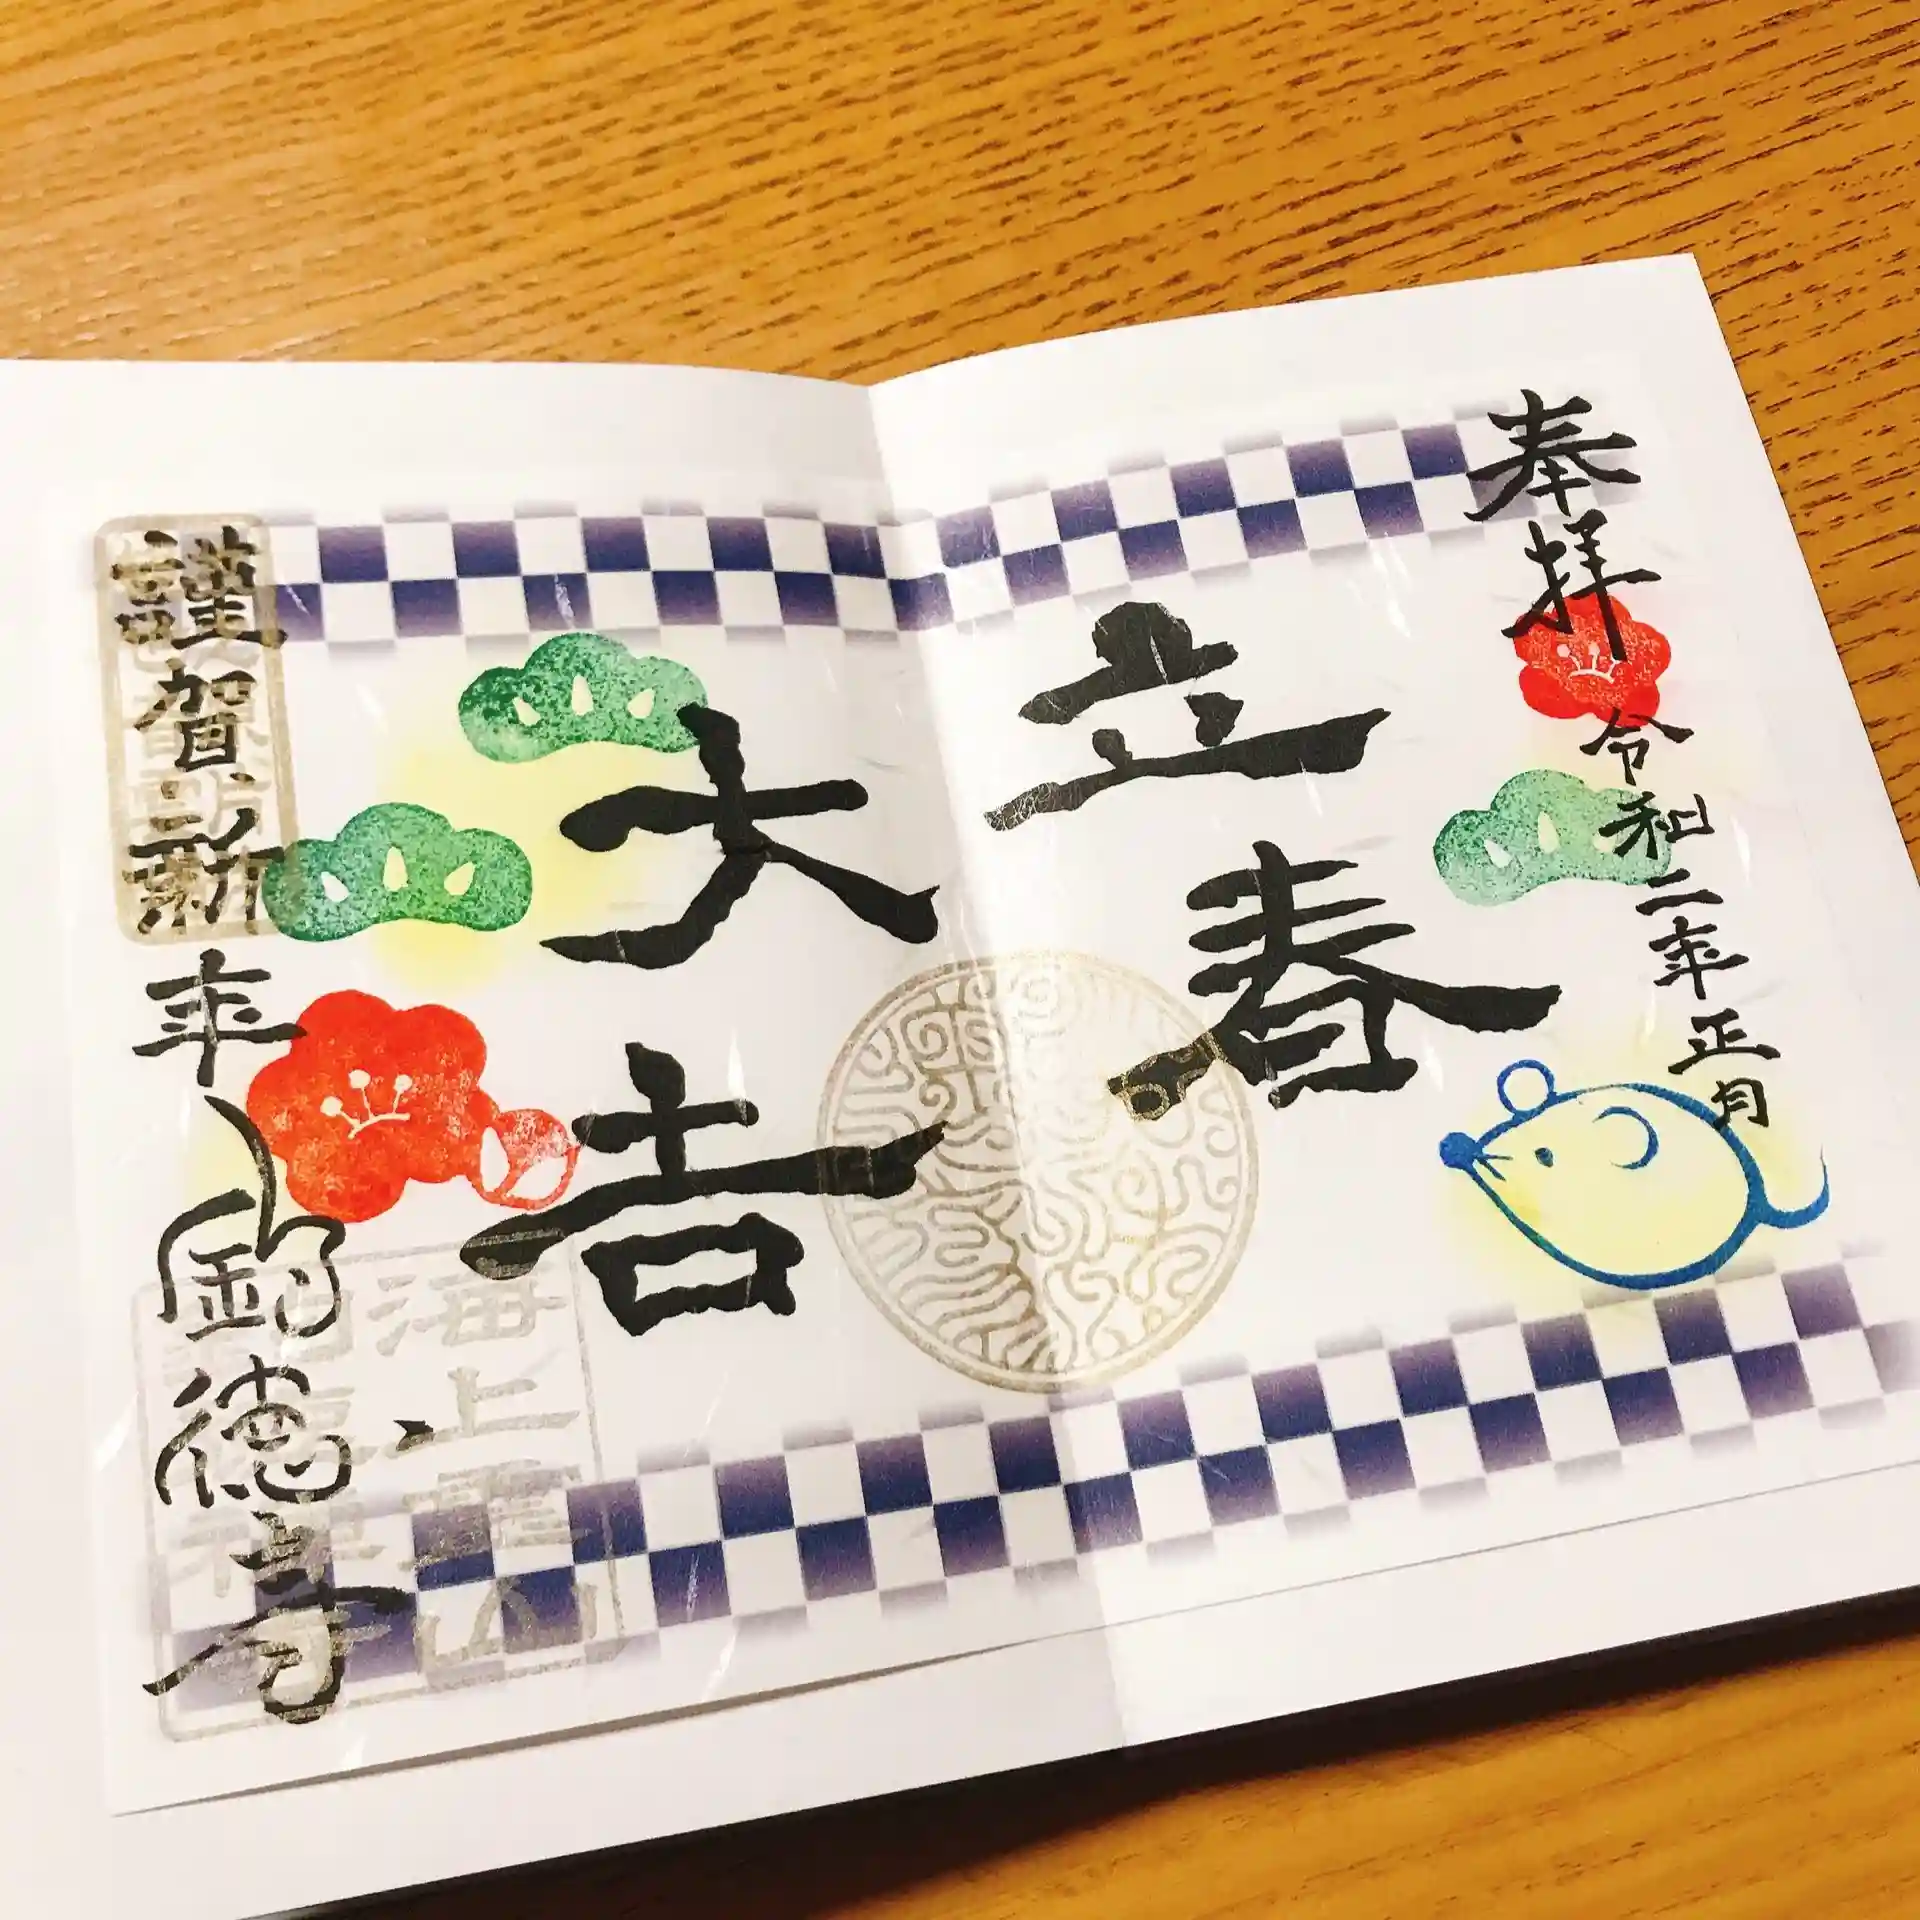 奉拝
令和二年正月
立春
大吉
謹賀新年
海上山